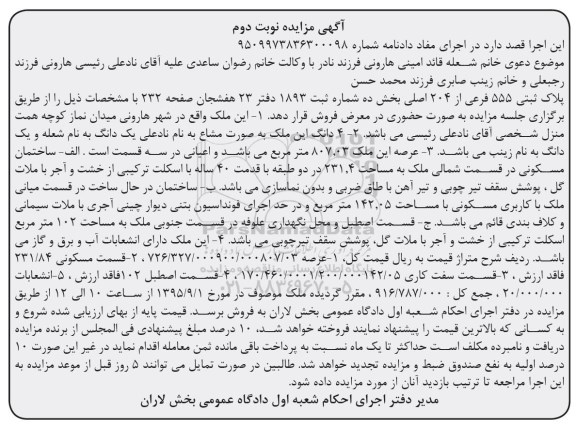 آگهی مزایده نوبت دوم
این اجرا قصد دارد در اجرای مفاد دادنامه شماره ۹۵۰۹۹۷۳۸۳۶۳۰۰۰۹۸
موضوع دعوی خانم شـعله قائد امینی هارونی فرزند نادر با وکالت خانم رضوان ساعدی علیه آقای نادعلی رئیسی هارونی فرزند
رجبعلی و خانم زینب صابری فرزند محمد حسن
پلاک ثبتی ۵۵۵ فرعی از ۲۰۴ اصلی بخش ده شماره ثبت ۱۸۹۳ دفتر ۲۳ هفشجان صفحه ۲۳۲ با مشخصات ذیل را از طریق
برگزاری جلسه مزایده به صورت حضوری در معرض فروش قرار دهد. ۱- این ملک واقع در شهر هارونی میدان نماز کوچه همت
منزل شـخصی آقای نادعلی رئیسی می باشد. ۲- ۴ دانگ این ملک به صورت مشاع به نام نادعلی یک دانگ به نام شعله و یک
دانگ به نام زینب می باشـد. ۳- عرصه این ملک ۸۰۷،۰۳ متر مربع می باشـد و اعیانی در سـه قسمت است .الف- ساختمان
مسـکونی در قسـمت شمالی ملک به مساحت ۲۳۱،۴ در دو طبقه با قدمت ۴۰ ساله با اسکلت ترکیبی از خشت و آجر با ملات
گل ، پوشش سقف تیر چوبی و تیر آهن با طاق ضربی و بدون نماسازی می باشد. ب- ساختمان در حال ساخت در قسمت میانی
ملک با کاربری مسـکونی با مسـاحت ۱۴۲،۰۵ متر مربع و در حد اجرای فونداسیون بتنی دیوار چینی آجری با ملات سیمانی
و کلاف بندی قائم می باشـد. ج- قسـمت اصطبل و محل نگهداری علوفه در قسـمت جنوبی ملک به مساحت ۱۰۲ متر مربع
اسکلت ترکیبی از خشت و آجر با ملات گل، پوشش سقف تیرچوبی می باشد. ۴- این ملک دارای انشعابات آب و برق و گاز می
باشـد. ردیف شرح متراژ قیمت به ریال قیمت کل، ۱-عرصه ۸۰۷/۰۳ ۹۰۰/۰۰۰ ۷۲۶/۳۲۷/۰۰۰ ، ۲-قسمت مسکونی ۲۳۱/۸۴
فاقد ارزش ، ۳-قسـمت سفت کاری ۱۴۲/۰۵ ۱/۲۰۰/۰۰۰ ۱۷۰/۴۶۰/۰۰۰، ۴-قسـمت اصطبل ۱۰۲فاقد ارزش ، ۵-انشعابات
۲۰/۰۰۰/۰۰۰ ، جمع کل : ۹۱۶/۷۸۷/۰۰۰ ، مقرر گردیده ملک موصوف در مورخ ۱۳۹۵/۹/۱ از سـاعت ۱۰ الی ۱۲ از طریق
مزایده در دفتر اجرای احکام شـعبه اول دادگاه عمومی بخش لاران به فروش برسـد. قیمت پایه از بهای ارزیابی شده شروع و
به کسـانی که بالاترین قیمت را پیشنهاد نمایند فروخته خواهد شـد، ۱۰ درصد مبلغ پیشنهادی فی المجلس از برنده مزایده
دریافت و نامبرده مکلف اسـت حداکثر تا یک ماه نسـبت به پرداخت باقی مانده ثمن معامله اقدام نماید در غیر این صورت ۱۰
درصد اولیه به نفع صندوق ضبط و مزایده تجدید خواهد شد. طالبین در صورت تمایل می توانند ۵ روز قبل از موعد مزایده به
این اجرا مراجعه تا ترتیب بازدید آنان از مورد مزایده داده شود.
مدیر دفتر اجرای احکام شعبه اول دادگاه عمومی بخش لاران
ParsNamadData
۰۲۱-۸۸۳۴۹۶۷۰-۵